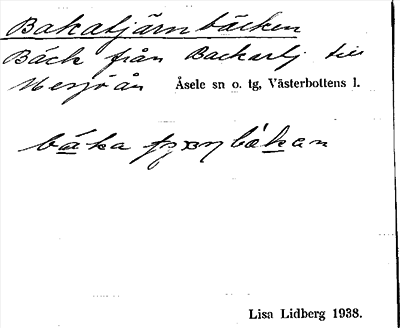 Bakatjärnbäcken
Bäck från Backatj. till
Mesjöån Åsele sn o. tg, Västerbottens l.
Lisa Lidberg 1938.